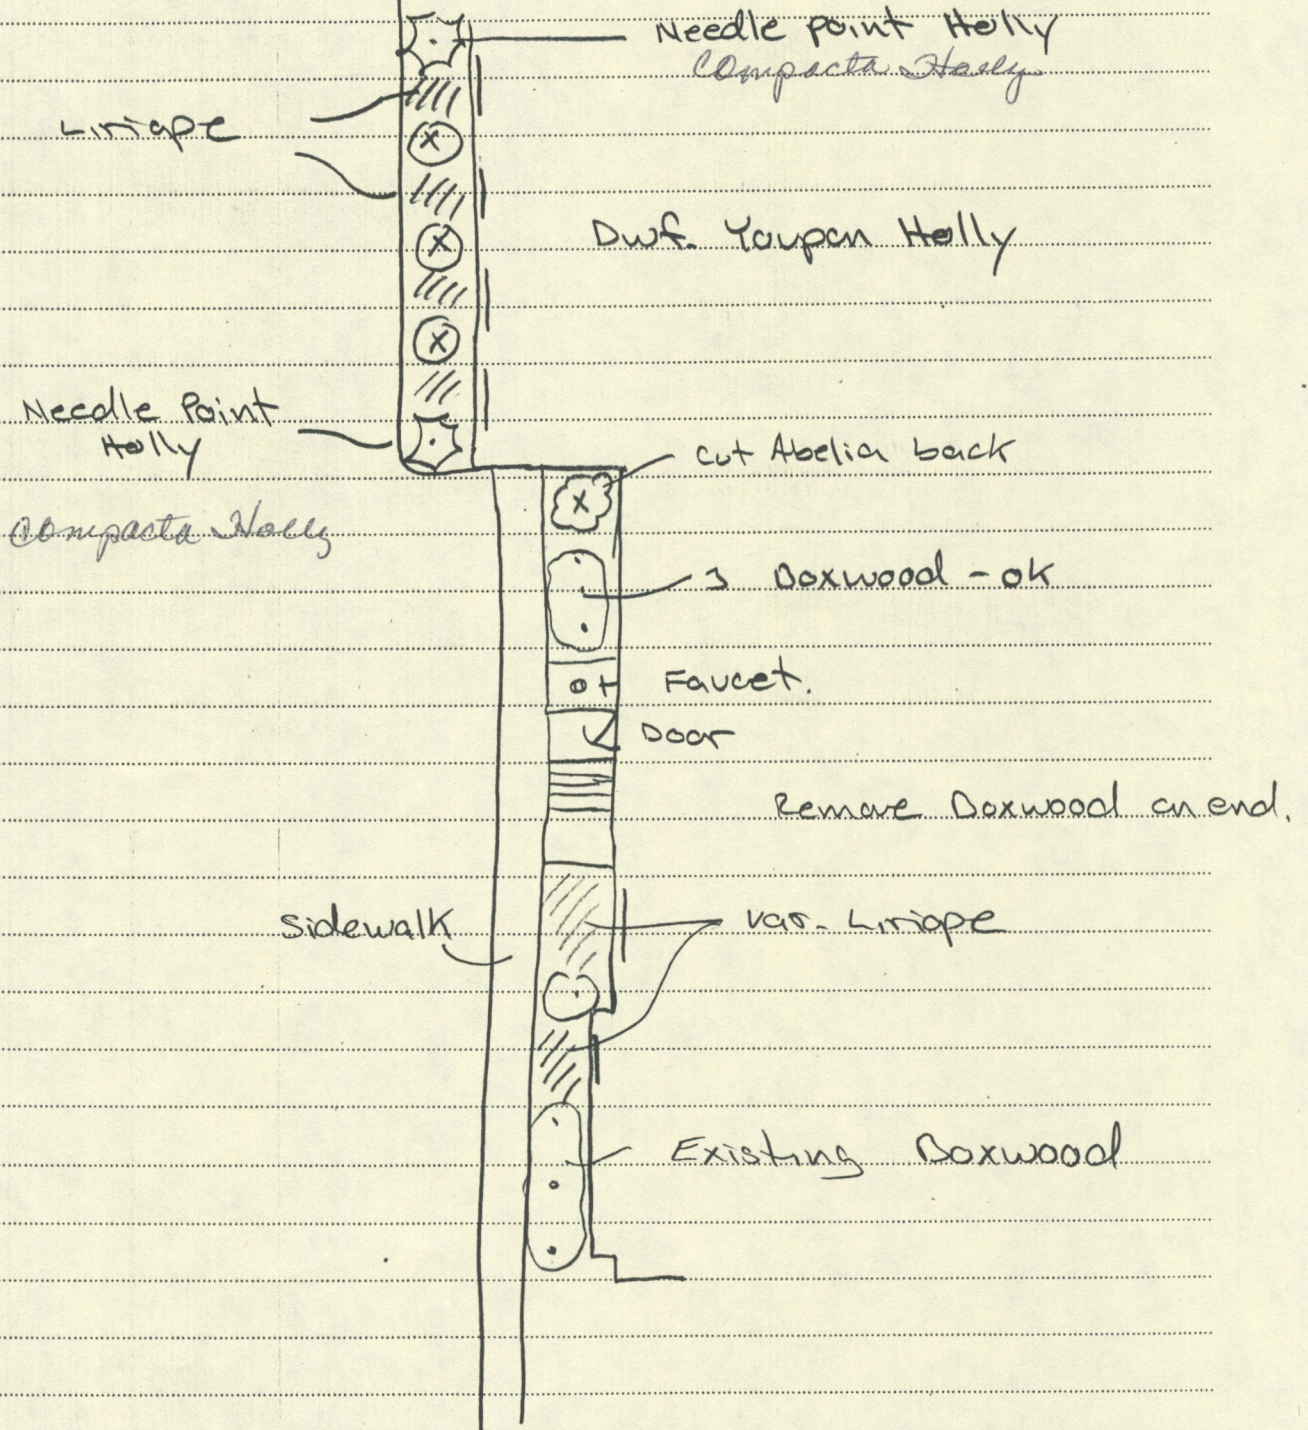 Needle Point Holly
Compacta Holly
Liriope
Dwf. Yaupon Holly
Needle Point
Holly
Cut Abelia back
Compacta Holly
3 Boxwood - ok
Faucet.
Door
Remove Boxwood on end.
Sidewalk
Var. Liriope
Existing Boxwood